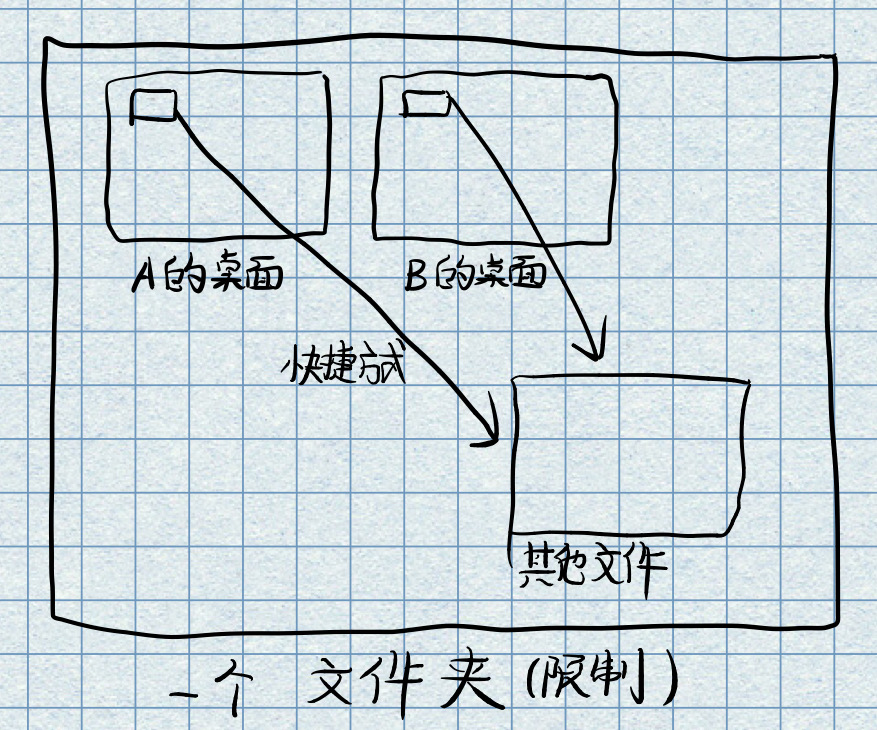 A的桌面
B的桌面
快捷方式
其他文件
一个 文件夹(限制)